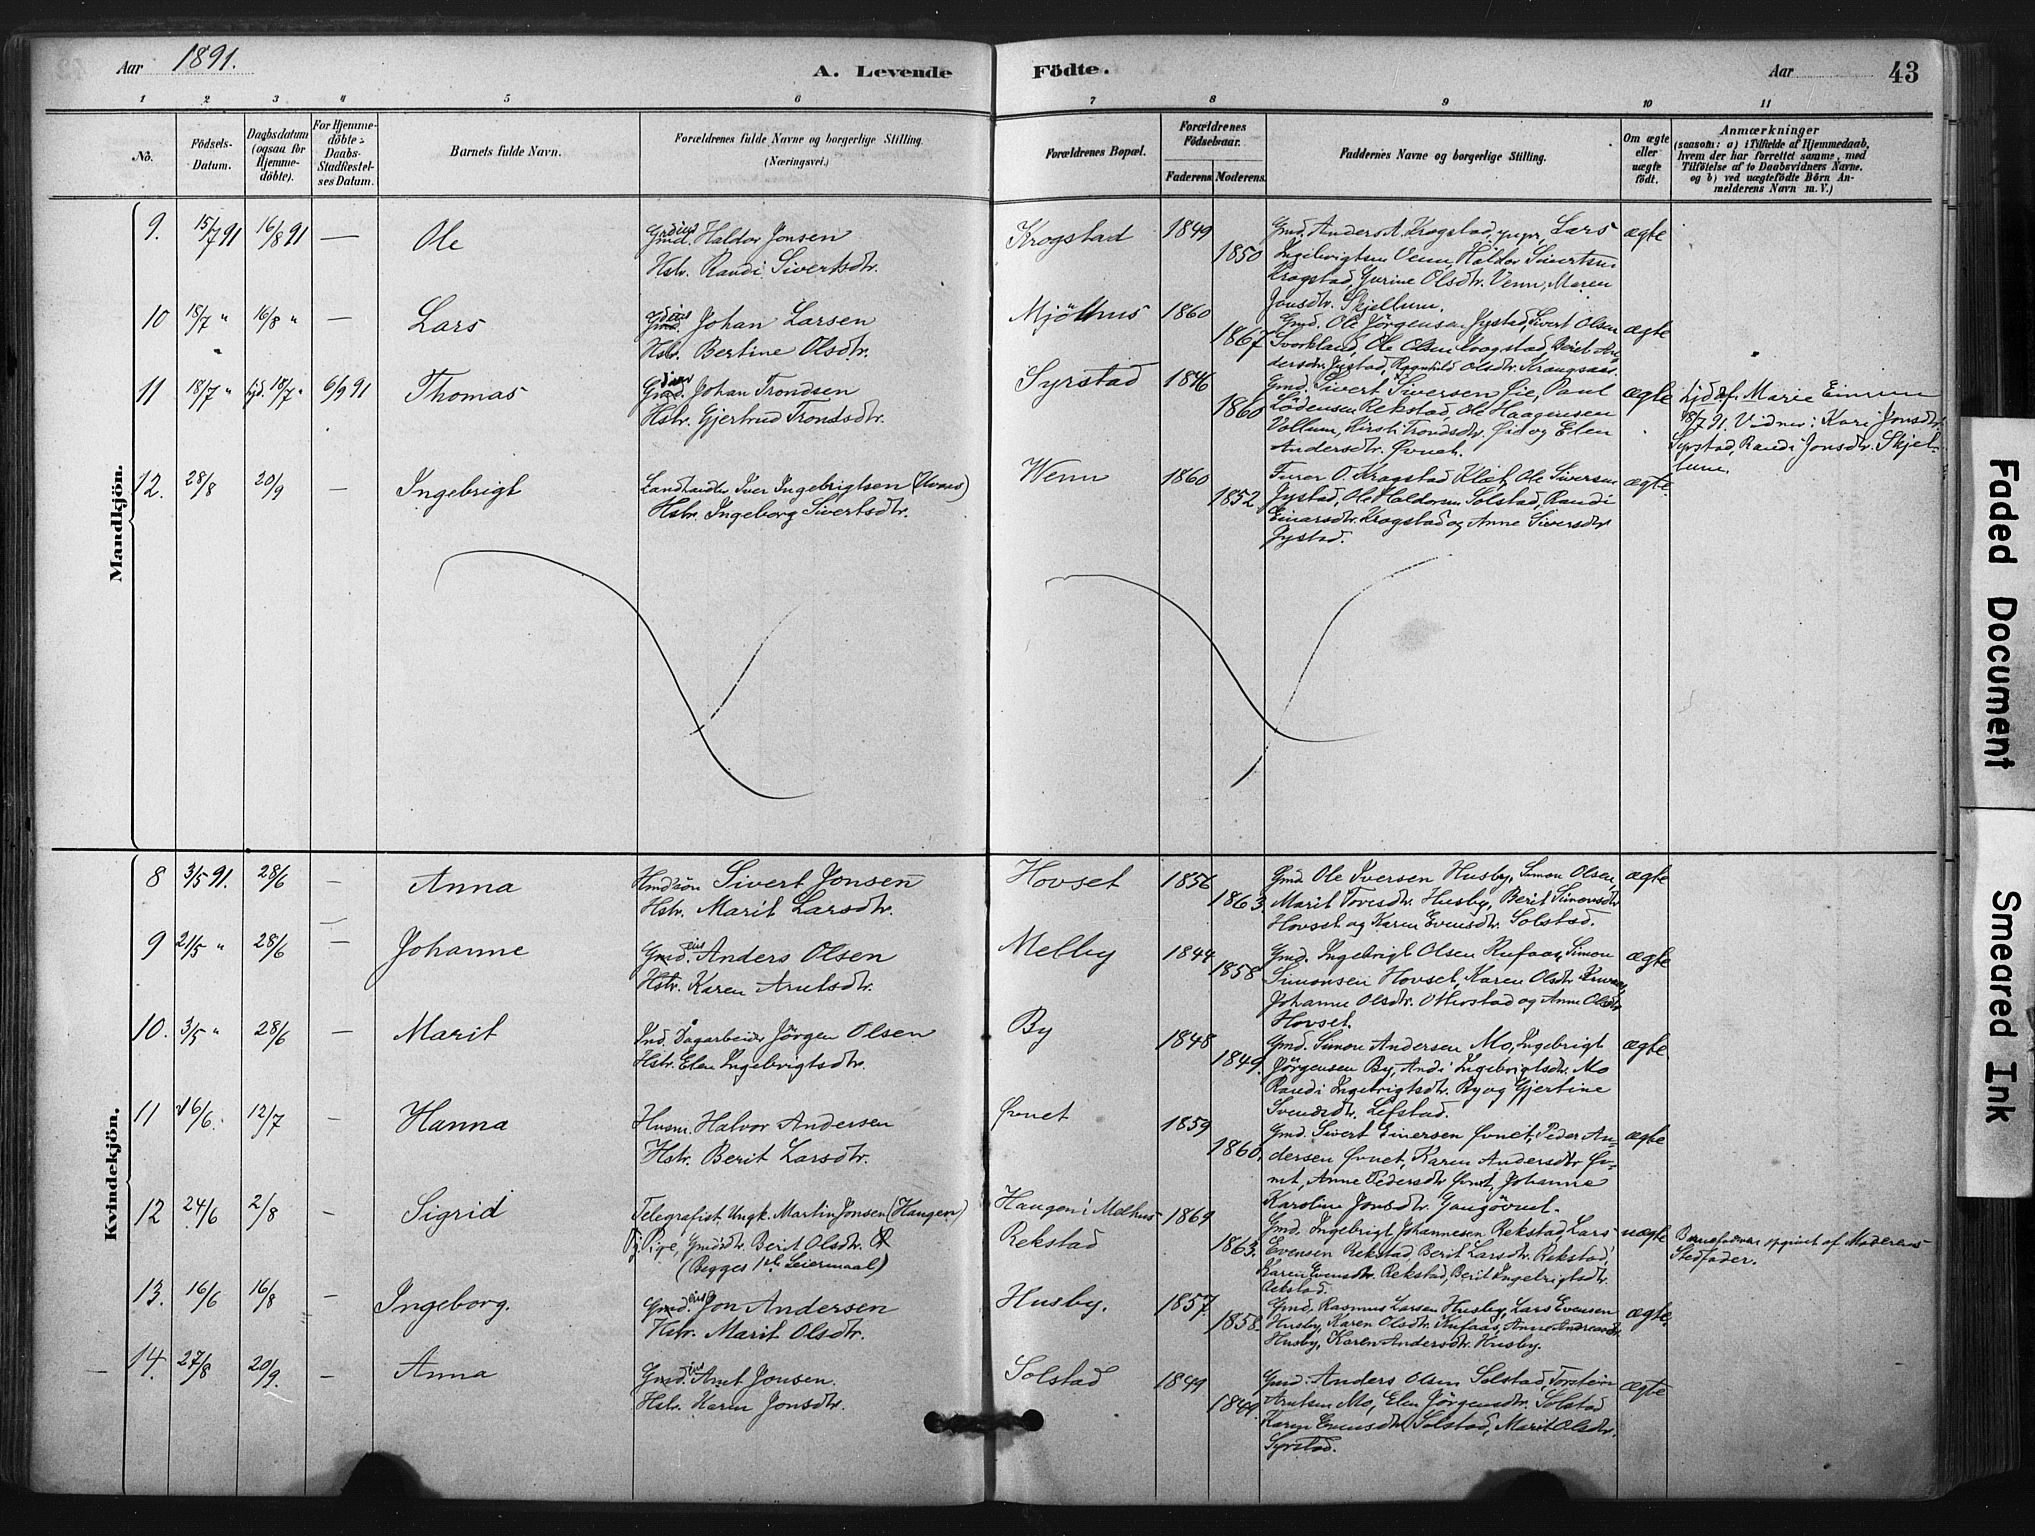 Aar 1891.
A. Levende
Födte.
Aar
43
1 2 3 4 5 6 7 8 9 10 11
No.
Födsels-
Datum.
Daabsdatum
(ogsaa for
Hjemme-
döbte).
For Hjemme-
döbte:
Daabs-
Stadfæstel-
ses Datum.
Barnets fulde Navn.
Forældrenes fulde Navne og borgerlige Stilling.
(Næringsvei.)
Forældrenes Bopæl.
Forældrenes
Födselsaar.
Faderens Moderens.
Faddernes Navne og borgerlige Stilling.
Om ægte
eller
uægte
födt.
Anmærkninger
(saasom: a) i Tilfælde af Hjemmedaab,
hvem der har forrettet samme, med
Tilföielse af to Daabsvidners Navne,
og b) ved uægtefödte Börn An-
melderens Navn m. V.)
Mandkjön.
9. 15/7 91 16/8 91 — Ole Gmd. Haldor Jonsen
Hstr. Randi Sivertsdtr.
Krogstad 1849 1850
Gmd. Anders A. Krogstad, Lars
Ingebrigtsen Venn, Haldor Sivertsen
Krogstad, Gurine Olsdtr. Venn, Maren
Jonsdtr. Skjellum.
ægte
10 18/7 " 16/8 " — Lars Gmd. Johan Larsen
Hstr. Bertine Olsdtr.
Mjöthus 1860 1867
Gmd. Ole Jörgensen Gystad, Sivert Olsen
Svorkland, Ole Olsen Krogstad, Berit An-
dersdtr. Gystad, Ragnhild Olsdtr.
ægte
11 18/7 " Hjd. 18/7 " 6/9 91 Thomas Gmd. Johan Trondsen
Hstr. Gjertrud Trondsdtr.
Syrstad 1846 1860
Gmd. Sivert Siversen Öie, Paul
Rekstad, Ole Haagensen
Vollum, Kirsti Trondsdtr. Öie og Elen
Andersdtr. Övnet.
ægte
Hjd. af Marie
18/7 91. Vidner: Kari Jonsdtr.
Syrstad, Randi Jonsdtr. Skjel-
lum.
12. 28/8 20/9 — Ingebrigt Landhandler Iver Ingebrigtsen
Hstr. Ingeborg Sivertsdtr.
Wenn 1860 1852
O. Krogstad Klæt, Ole Siversen
Gystad, Ole Haldorsen Solstad, Randi
Einarsdtr. Krogstad og Anne Siversdtr
Gystad.
ægte
Kvindekjön.
8 3/5 91. 28/6 — Anna Hmdsön Sivert Jonsen
Hstr. Marit Larsdtr.
Hovset 1856 1863
Gmd Ole Iversen Husby, Simon Olsen,
Marit Toresdtr. Husby, Berit Simonsdtr
Hovset og Karen Evensdtr. Solstad.
ægte
9 21/5 " 28/6 — Johanne Gmd. Anders Olsen
Hstr. Karen Arntsdtr.
Melby 1844 1858
Gmd. Ingebrigt Olsen Kufaas, Simon
Simonsen Hovset, Karen Olsdtr
Johanne Olsdtr. Otterstad og Anne Olsdtr
Hovset.
ægte
10. 3/5 " 28/6 — Marit Ind. Dagarbeider Jörgen Olsen
Hstr. Elen Ingebrigtsdtr.
By 1848 1849
Gmd. Simon Andersen Mo, Ingebrigt
Jörgensen By, Andi Ingebrigtsdtr. Mo
Randi Ingebrigtsdtr. By og Gjertine
Svendsdtr. Lefstad.
ægte
11 16/6. 12/7 — Hanna Husm. Halvor Andersen
Hstr. Berit Larsdtr.
Övnet 1859 1860
Gmd. Sivert Einersen Övnet, Peder An-
dersen Övnet, Karen Andersdtr Öv-
net, Anne Pedersdtr Övnet, Johanne
Karoline Jonsdtr. Gangövnet.
ægte
12 24/6 2/8 — Sigrid Telegrafist, Ungk. Martin Jonsen (Haugen)
Pige, Gmdsdtr. Berit Olsdtr.
(Begges 1ste Leiermaal)
Haugen i Melhus
Rekstad
1869 1863
Gmd. Ingebrigt Johannesen Rekstad, Lars
Evensen Rekstad, Berit Larsdtr. Rekstad,
Karen Evensdtr. Rekstad, Berit Ingebrigtsdtr.
Rekstad.
uægte
Barnefaderen opgivet af Moderens
Stedfader.
13. 16/6 16/8 — Ingeborg. Gmd. Jon Andersen
Hstr. Marit Olsdtr.
Husby. 1857 1858
Gmd. Rasmus Larsen Husby, Lars Evensen
Husby, Karen Olsdtr. Kufaas, Anne Andreasdtr.
Husby, Karen Andersdtr. Husby.
ægte
14. 27/8 20/9. — Anna Gmd. Arnt Jonsen.
Hstr. Karen Jonsdtr.
Solstad 1849 1849
Gmd. Anders Olsen Solstad, Torstein
Arntsen Mo, Elen Jörgensdtr. Solstad
Karen Evensdtr. Solstad, Marit Olsdtr.
Syrstad.
ægte
Faded Document
Smeared Ink